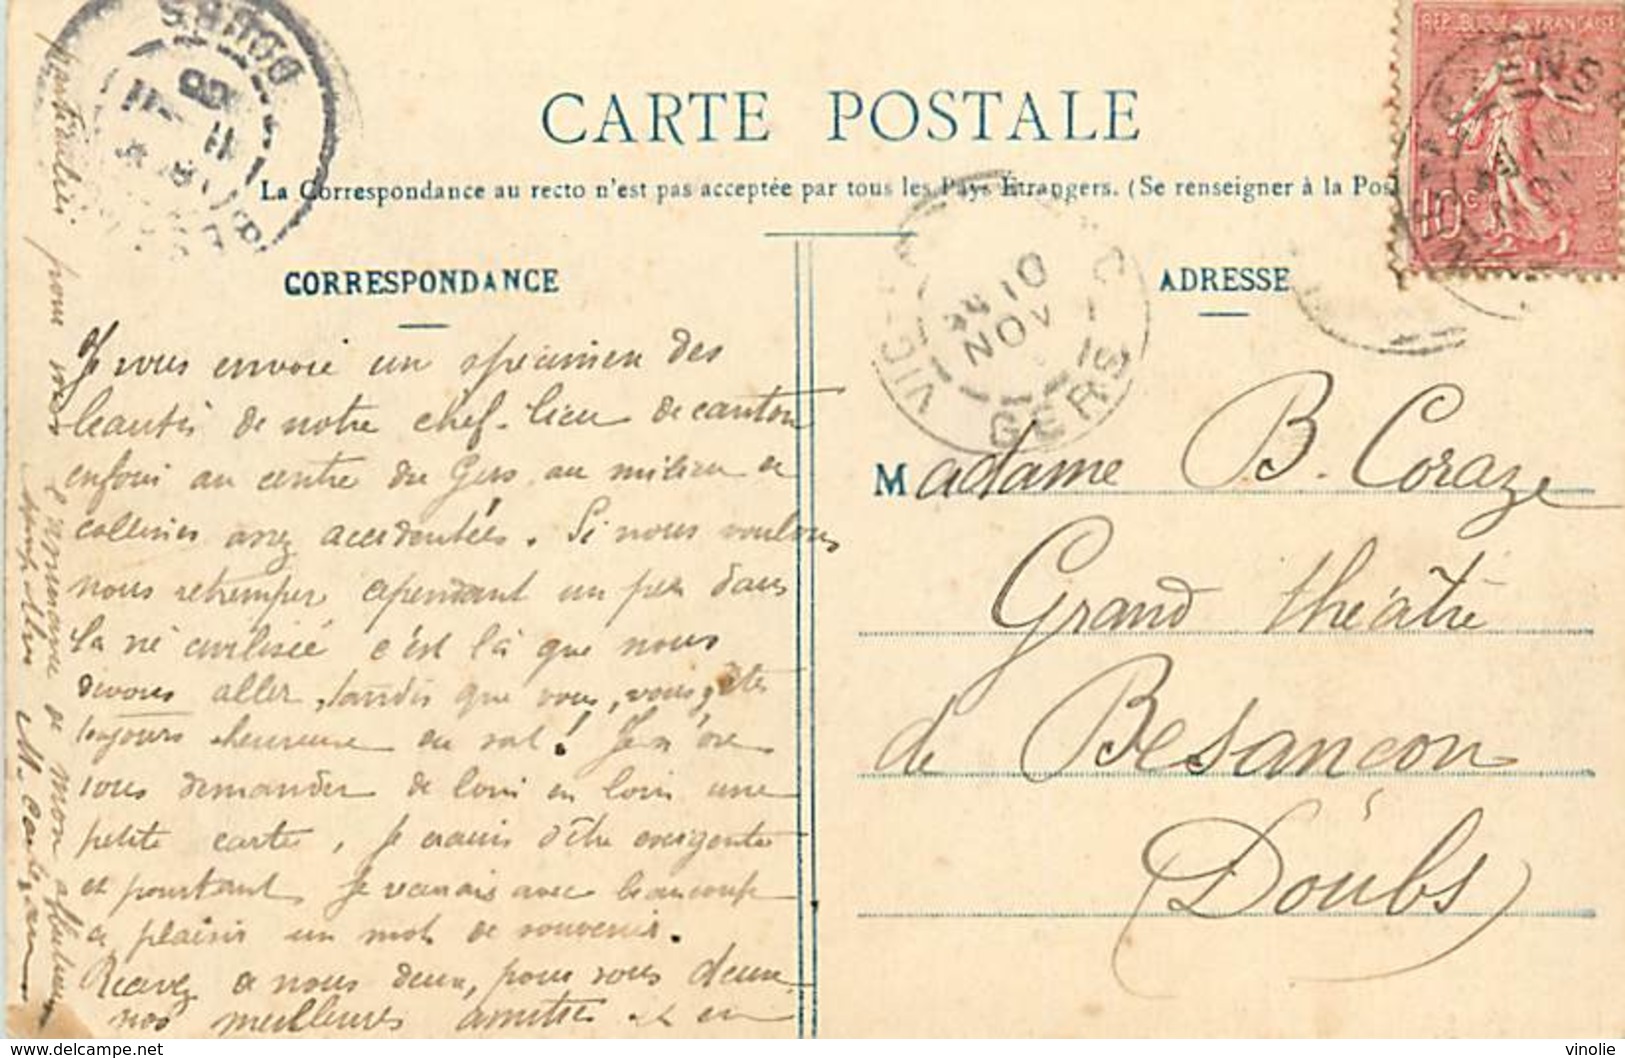 CARTE POSTALE
La Correspondance au recto n'est pas acceptée par tous les Pays Étrangers. (Se renseigner à la Pos
CORRESPONDANCE
Je vous envoie un spécimen des
beautés de notre chef-lieu de canton
enfoui au centre du Gers au milieu de
collines assez accidentées. Si nous voulons
nous retremper cependant un peu dans
la vie civilisée c'est là que nous
devons aller, tandis que vous, vous y êtes
toujours heureuse en soi! Je n'ose
vous demander de loin en loin une
petite carte, je crains d'être exigente
et pourtant je recevrais avec beaucoup
de plaisir un mot de souvenir.
Recevez de nous deux, pour vous deux
nos meilleures amitiés et en
particulier pour vous l'assurance de mon affectueux
M. Cartejean
ADRESSE
Madame B. Coraze
Grand théâtre
de Besançon
Doubs
REPUBLIQUE FRANCAISE
10c
VIC-F C
10
NOV
GERS
DOUBS
11
vinolie
delcampe.net